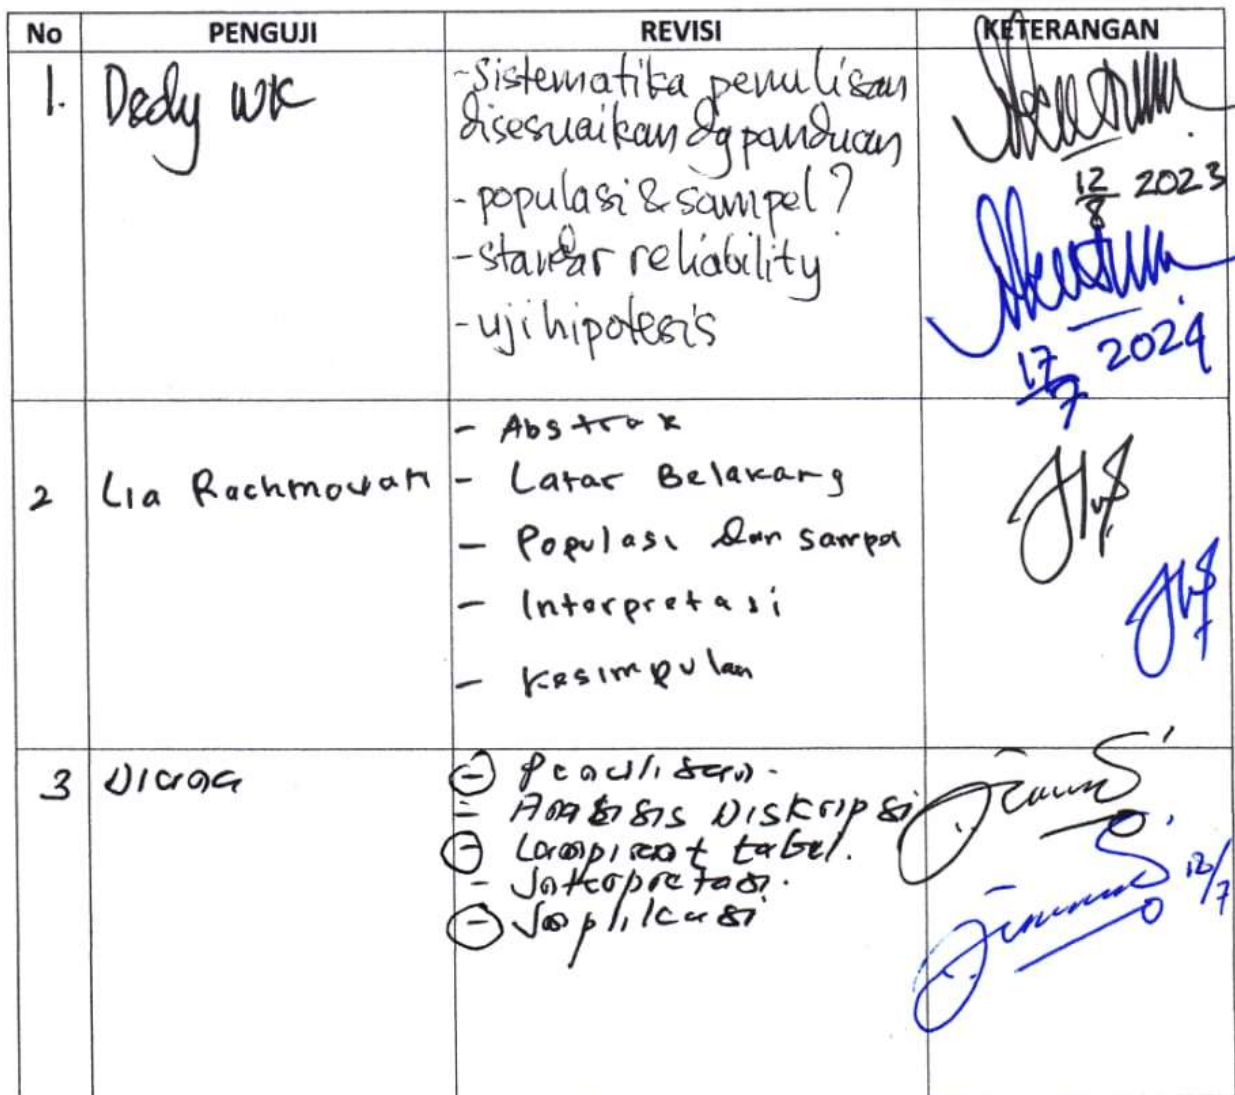 No PENGUJI REVISI KETERANGAN
1. Dedy WK
- Sistematika penulisan
disesuaikan dg panduan
- populasi & sampel ?
- standar reliability
- uji hipotesis
12/8 2023
17/7 2024
2 Lia Rachmawati
- Abstrak
- Latar Belakang
- Populasi dan sampel
- Interpretasi
- Kesimpulan
3 Diana
- Penulisan.
- Analisis Diskripsi
- Lampiran tabel.
- Interpretasi.
- Implikasi
12/7